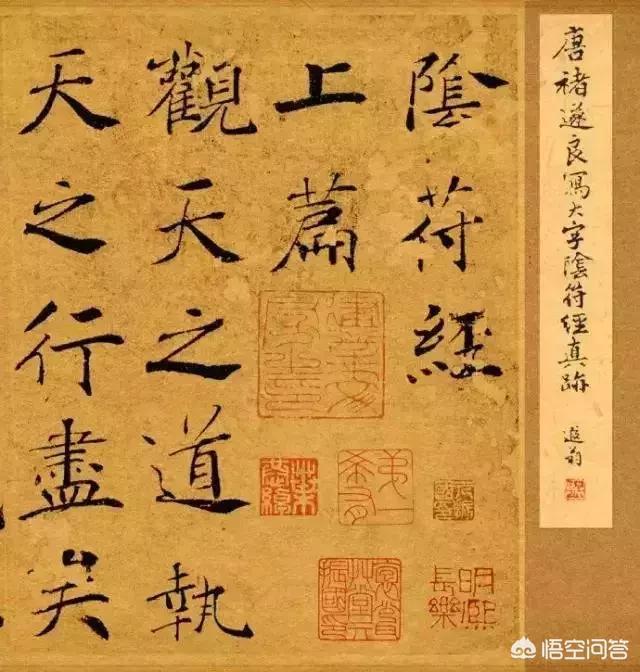 唐褚遂良寫大字陰符經真跡
遐翁
陰符經
上篇
觀天之道執
天之行盡矣
明熙
長樂
悟空问答